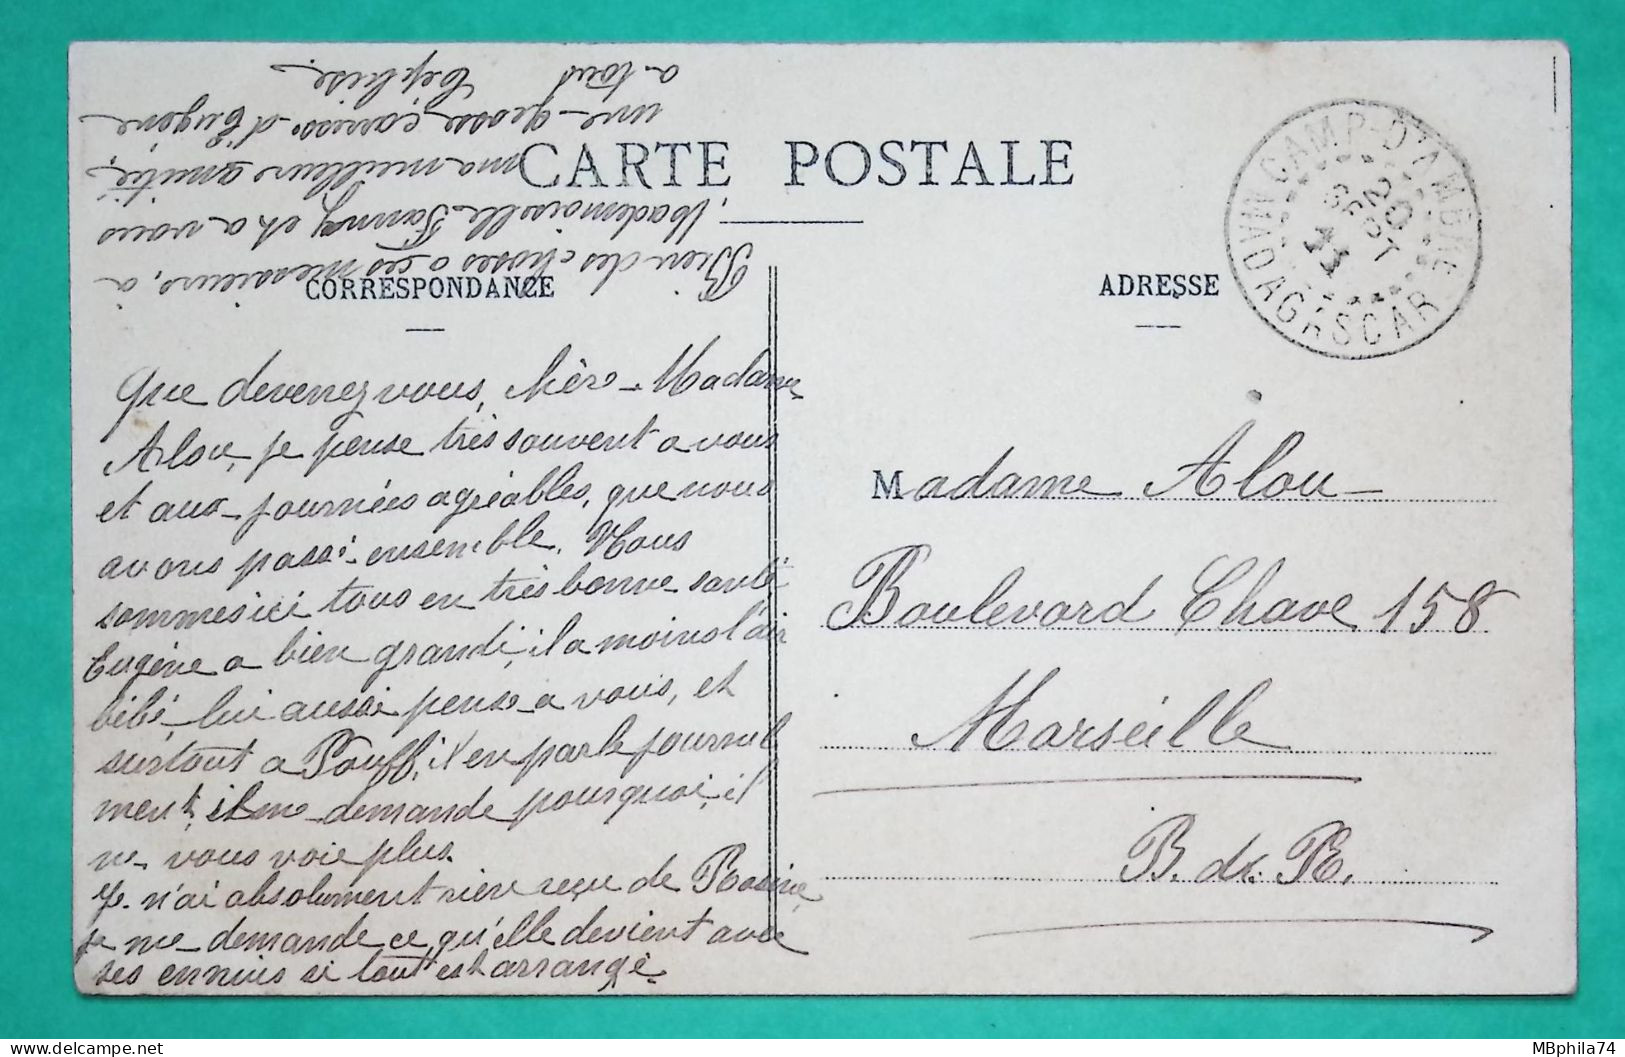 CARTE POSTALE
CORRESPONDANCE
ADRESSE
CAMP-D'AMBRE
20
SEPT
11
MADAGASCAR
Que devenez vous, chère Madame
Alou, je pense très souvent a vous
et aux journées agréables, que nous
avons passé ensemble. Nous
sommes ici tous en très bonne santé
Eugène a bien grandi, il a moins l'air
bébé, lui aussi pense a vous, et
surtout a Pouff, il en parle journel
ment, il me demande pourquoi, il
ne vous voie plus.
Je n'ai absolument rien reçu de Rosine,
je me demande ce qu'elle devient avec
ses ennuis si tout est arrangé.
Bien des choses a ces Messieurs, a
Mademoiselle Fanny et a vous
ma meilleure amitié,
une grosse caresse d'Eugène
a tous
Céphise.
Madame Alou
Boulevard Chave 158
Marseille
B. du R.
MBphila74